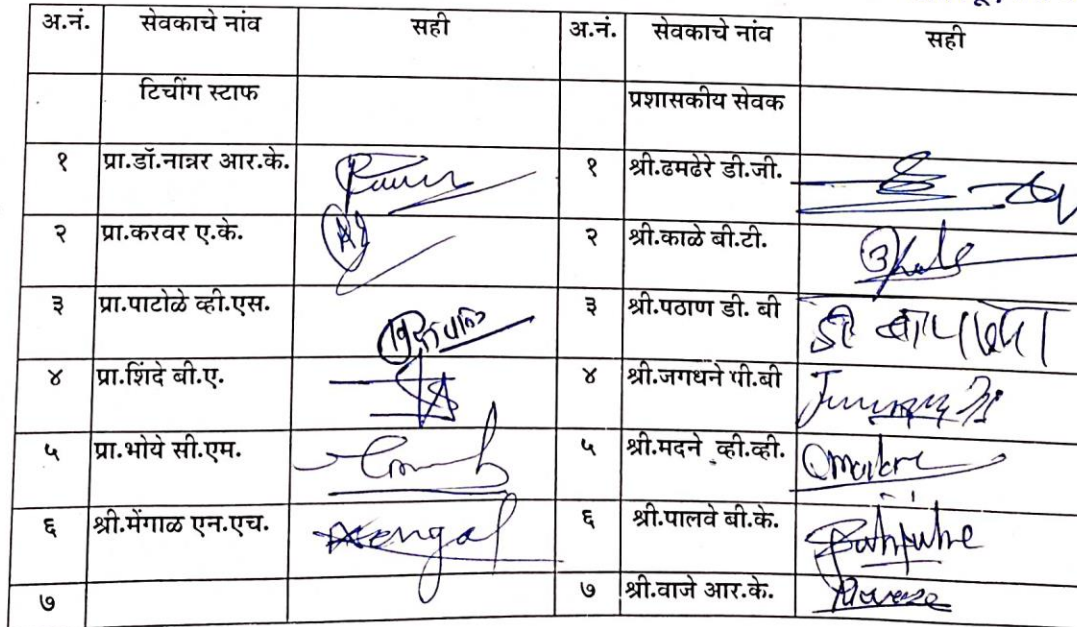 अ.नं. सेवकाचे नांव सही अ.नं. सेवकाचे नांव सही
टिचींग स्टाफ प्रशासकीय सेवक
१ प्रा.डॉ.नान्नर आर.के. १ श्री.ढमढेरे डी.जी.
२ प्रा.करवर ए.के. २ श्री.काळे बी.टी.
३ प्रा.पाटोळे व्ही.एस. ३ श्री.पठाण डी. बी
४ प्रा.शिंदे बी.ए. ४ श्री.जगधने पी.बी
५ प्रा.भोये सी.एम. ५ श्री.मदने व्ही.व्ही.
६ श्री.मेंगाळ एन.एच. ६ श्री.पालवे बी.के.
७ ७ श्री.वाजे आर.के.